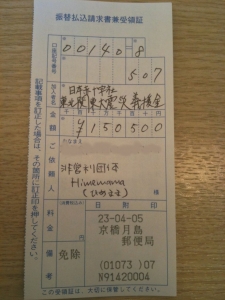 振替払込請求書兼受領証
口座記号番号
00140 8
507
加入者名
日本赤十字社
東北関東大震災義援金
金額
¥150500
ご依頼人
非営利団体
Himemama
(ひめまま)
様
料金
(消費税込み)
円
備考
免除
日附印
23-04-05
京橋月島
郵便局
(01073 )07
N91420004
記載事項を訂正した場合は、その箇所に訂正印を押してください。
この受領証は、大切に保管してください。